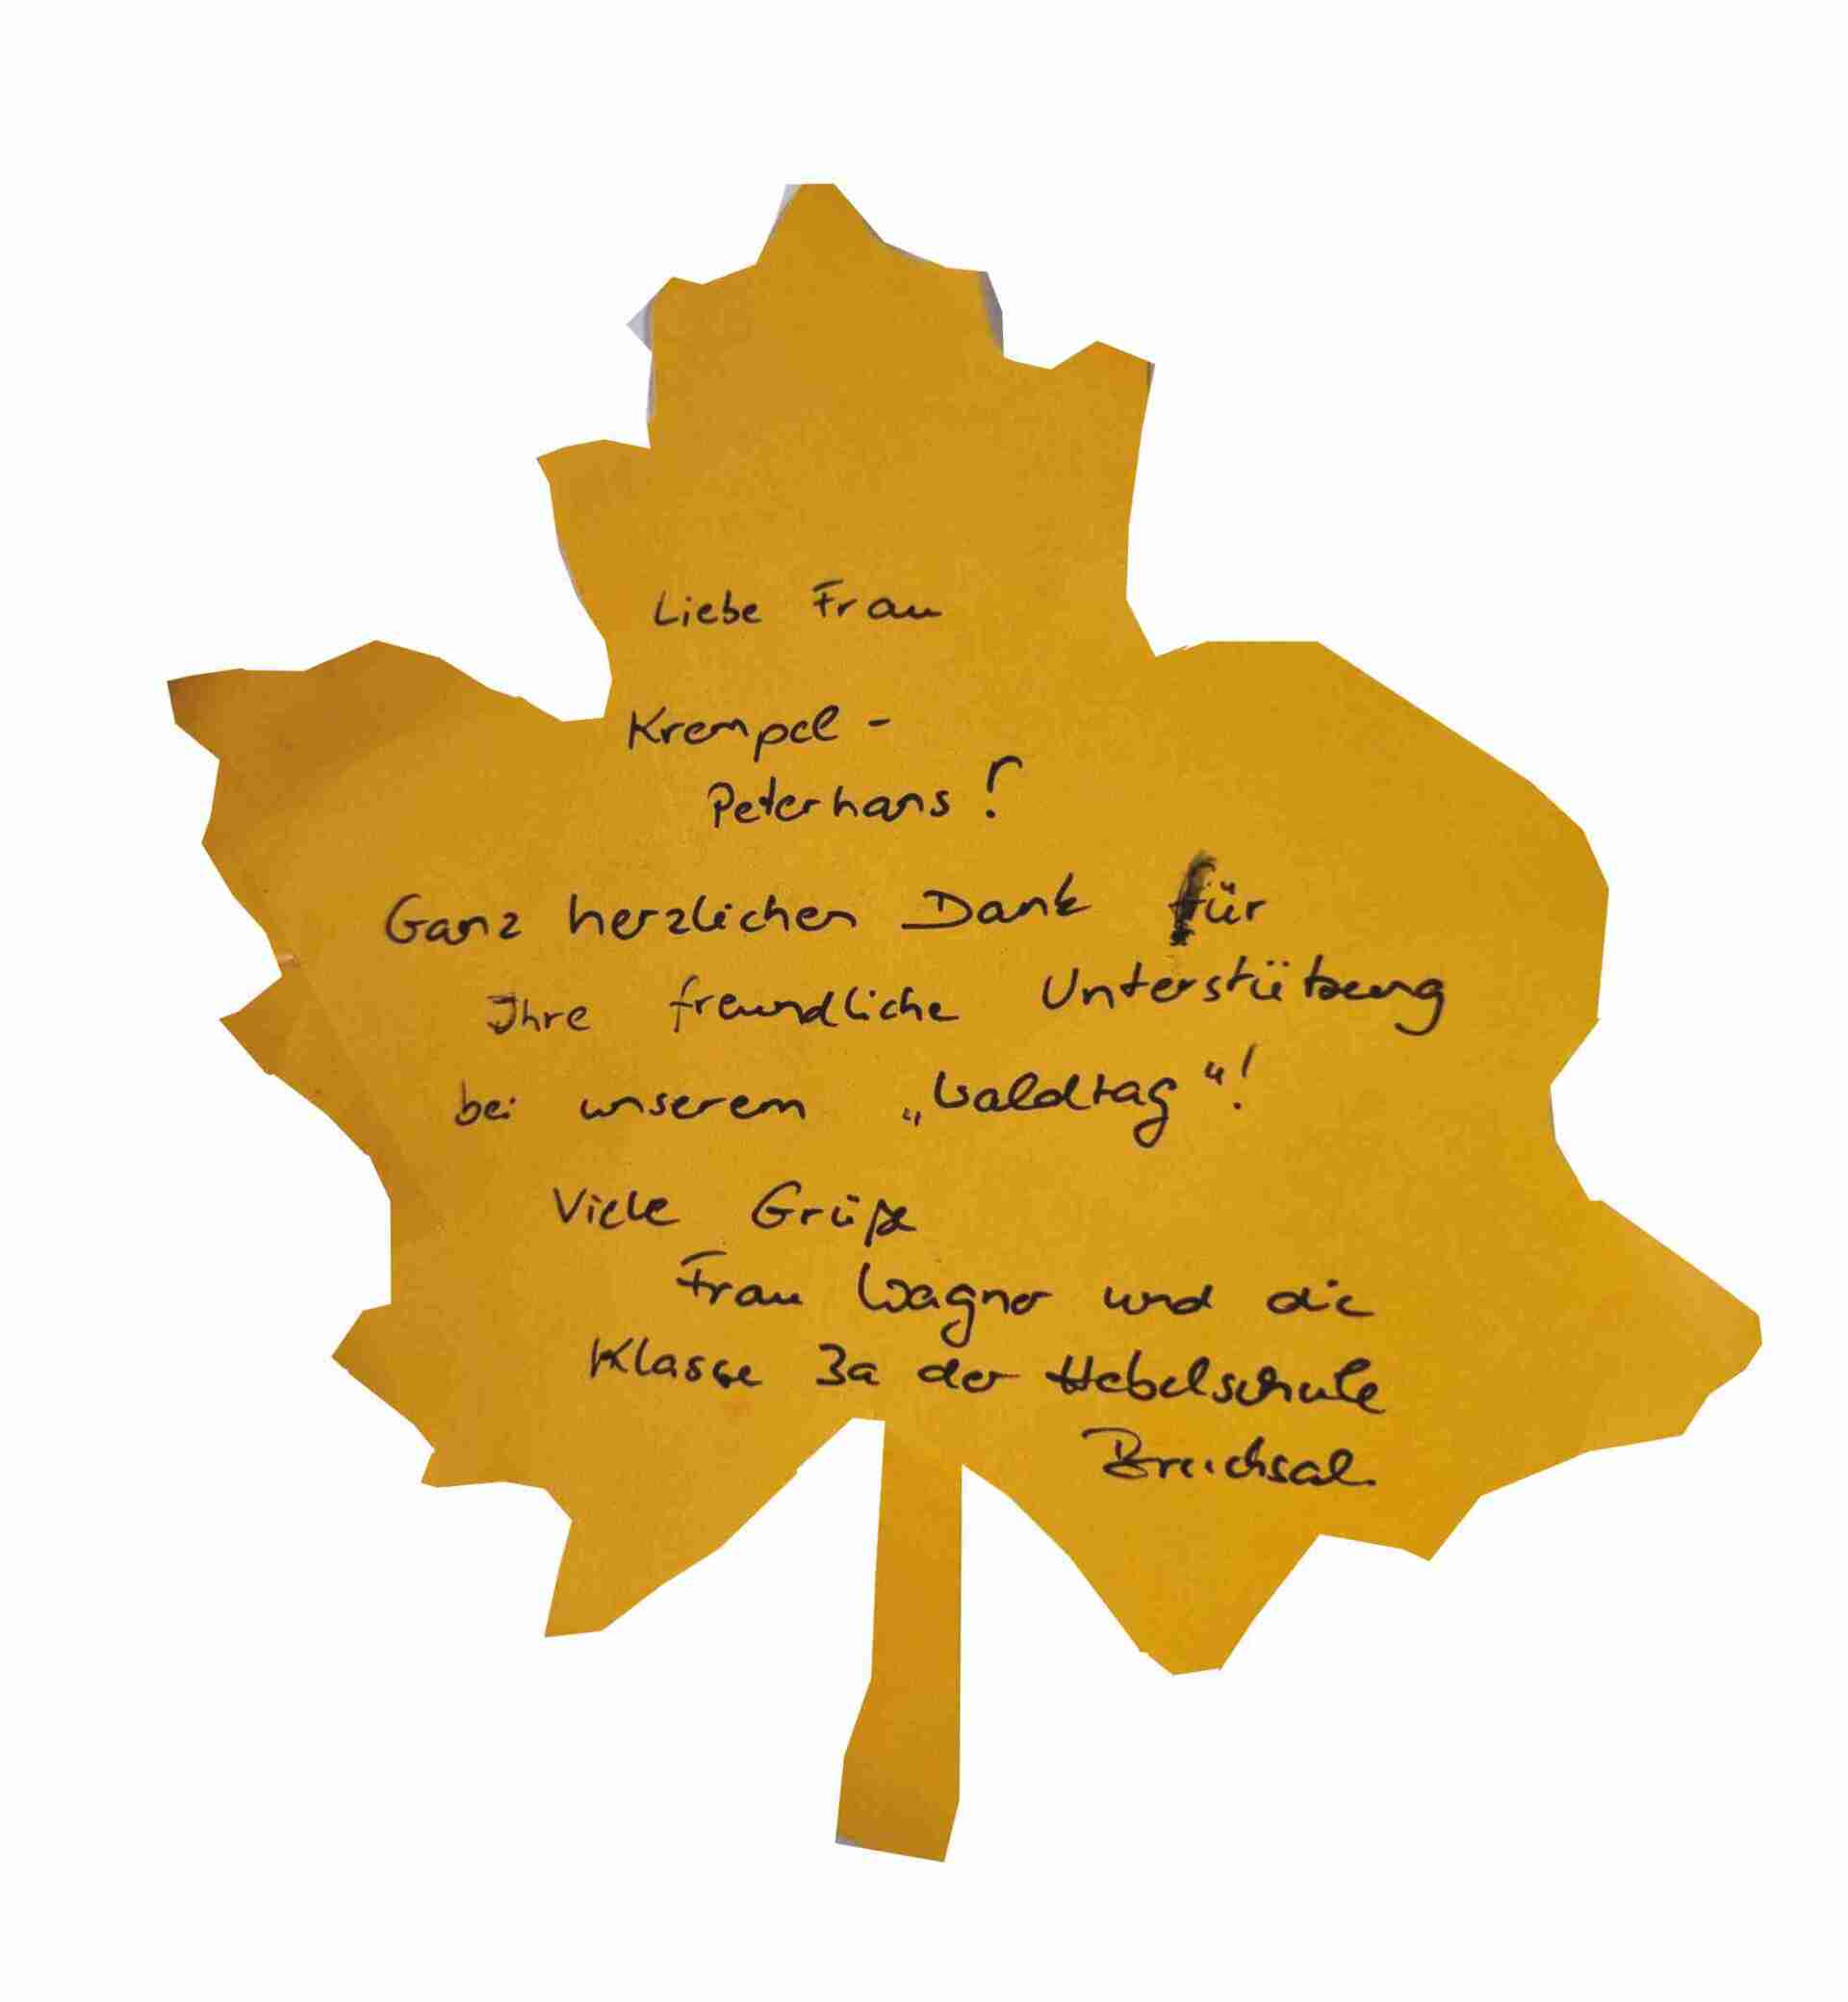 Liebe Frau
Krempel -
Peterhans!
Ganz herzlichen Dank für
Ihre freundliche Unterstützung
bei unserem „Waldtag“!
Viele Grüße
Frau Wagner und die
Klasse 3a der Hebelschule
Bruchsal.